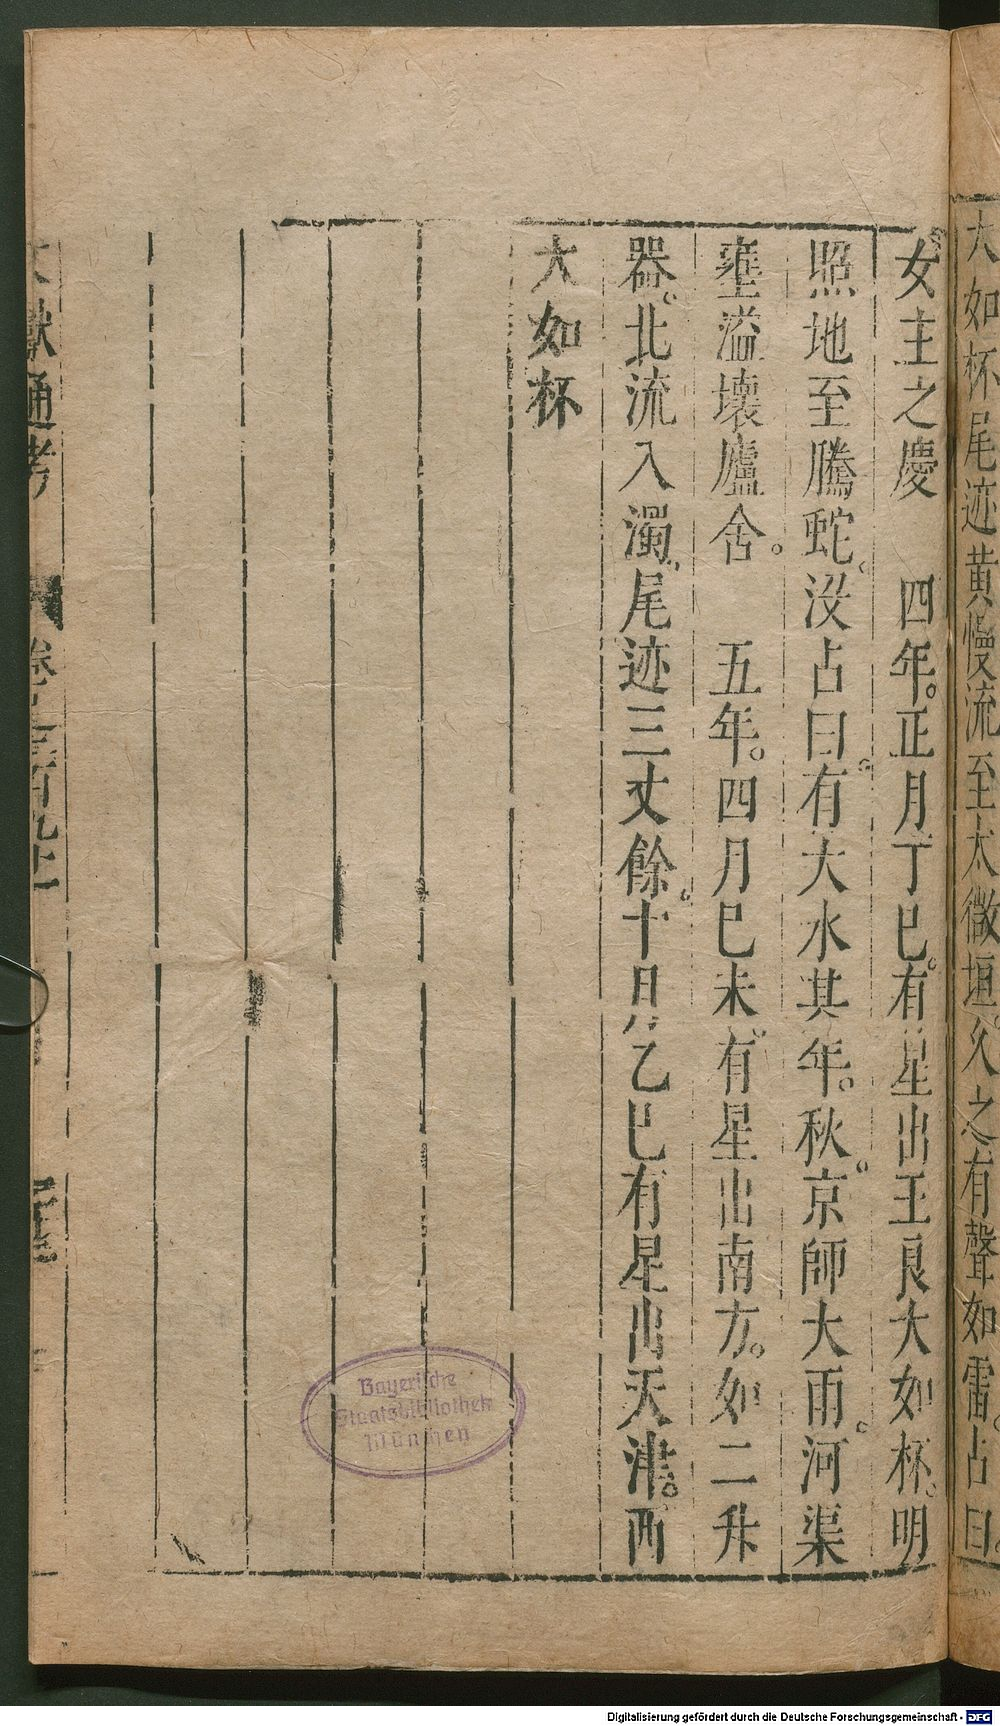 大如杯尾迹黄慢流至太微垣久之有聲如雷占曰
女主之慶　四年。正月丁巳。有星出王良大如杯。明
照地至騰蛇。没占曰。有大水其年。秋。京師大雨。河渠
壅溢壞廬舍。　五年。四月巳未。有星出南方。如二升
器。北流入濁。尾迹三丈餘。十月乙巳有星出天津。西
大如杯
文獻通考
卷之二百九十一
Bayerische
Staatsbibliothek
München
Digitalisierung gefördert durch die Deutsche Forschungsgemeinschaft - DFG